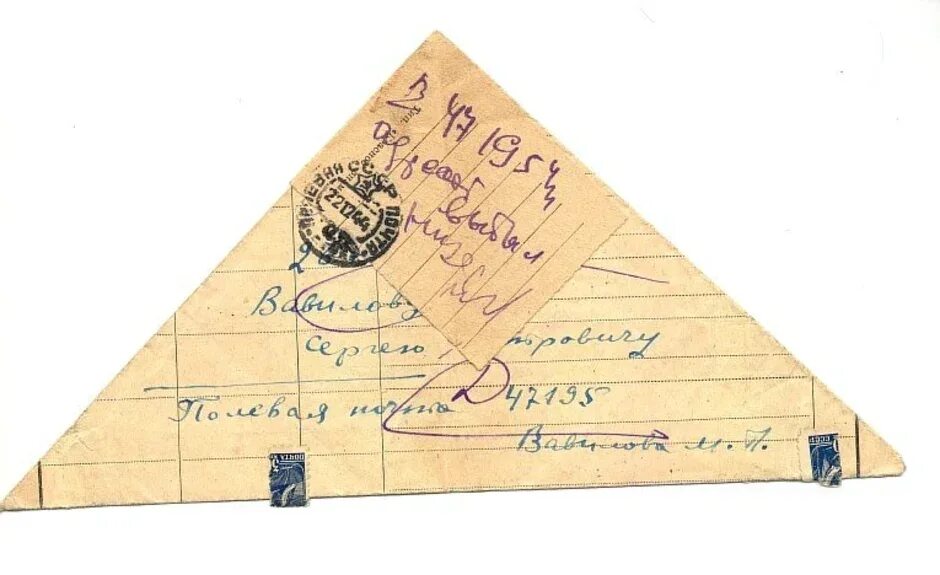 В 47195 ч
адресат
выбыл
ПОЛЕВАЯ ПОЧТА
СССР
22 12 44
Вавилову
Сергею тровичу
Полевая почта 47195
Вавилова М. П.
ПОЧТА
СССР